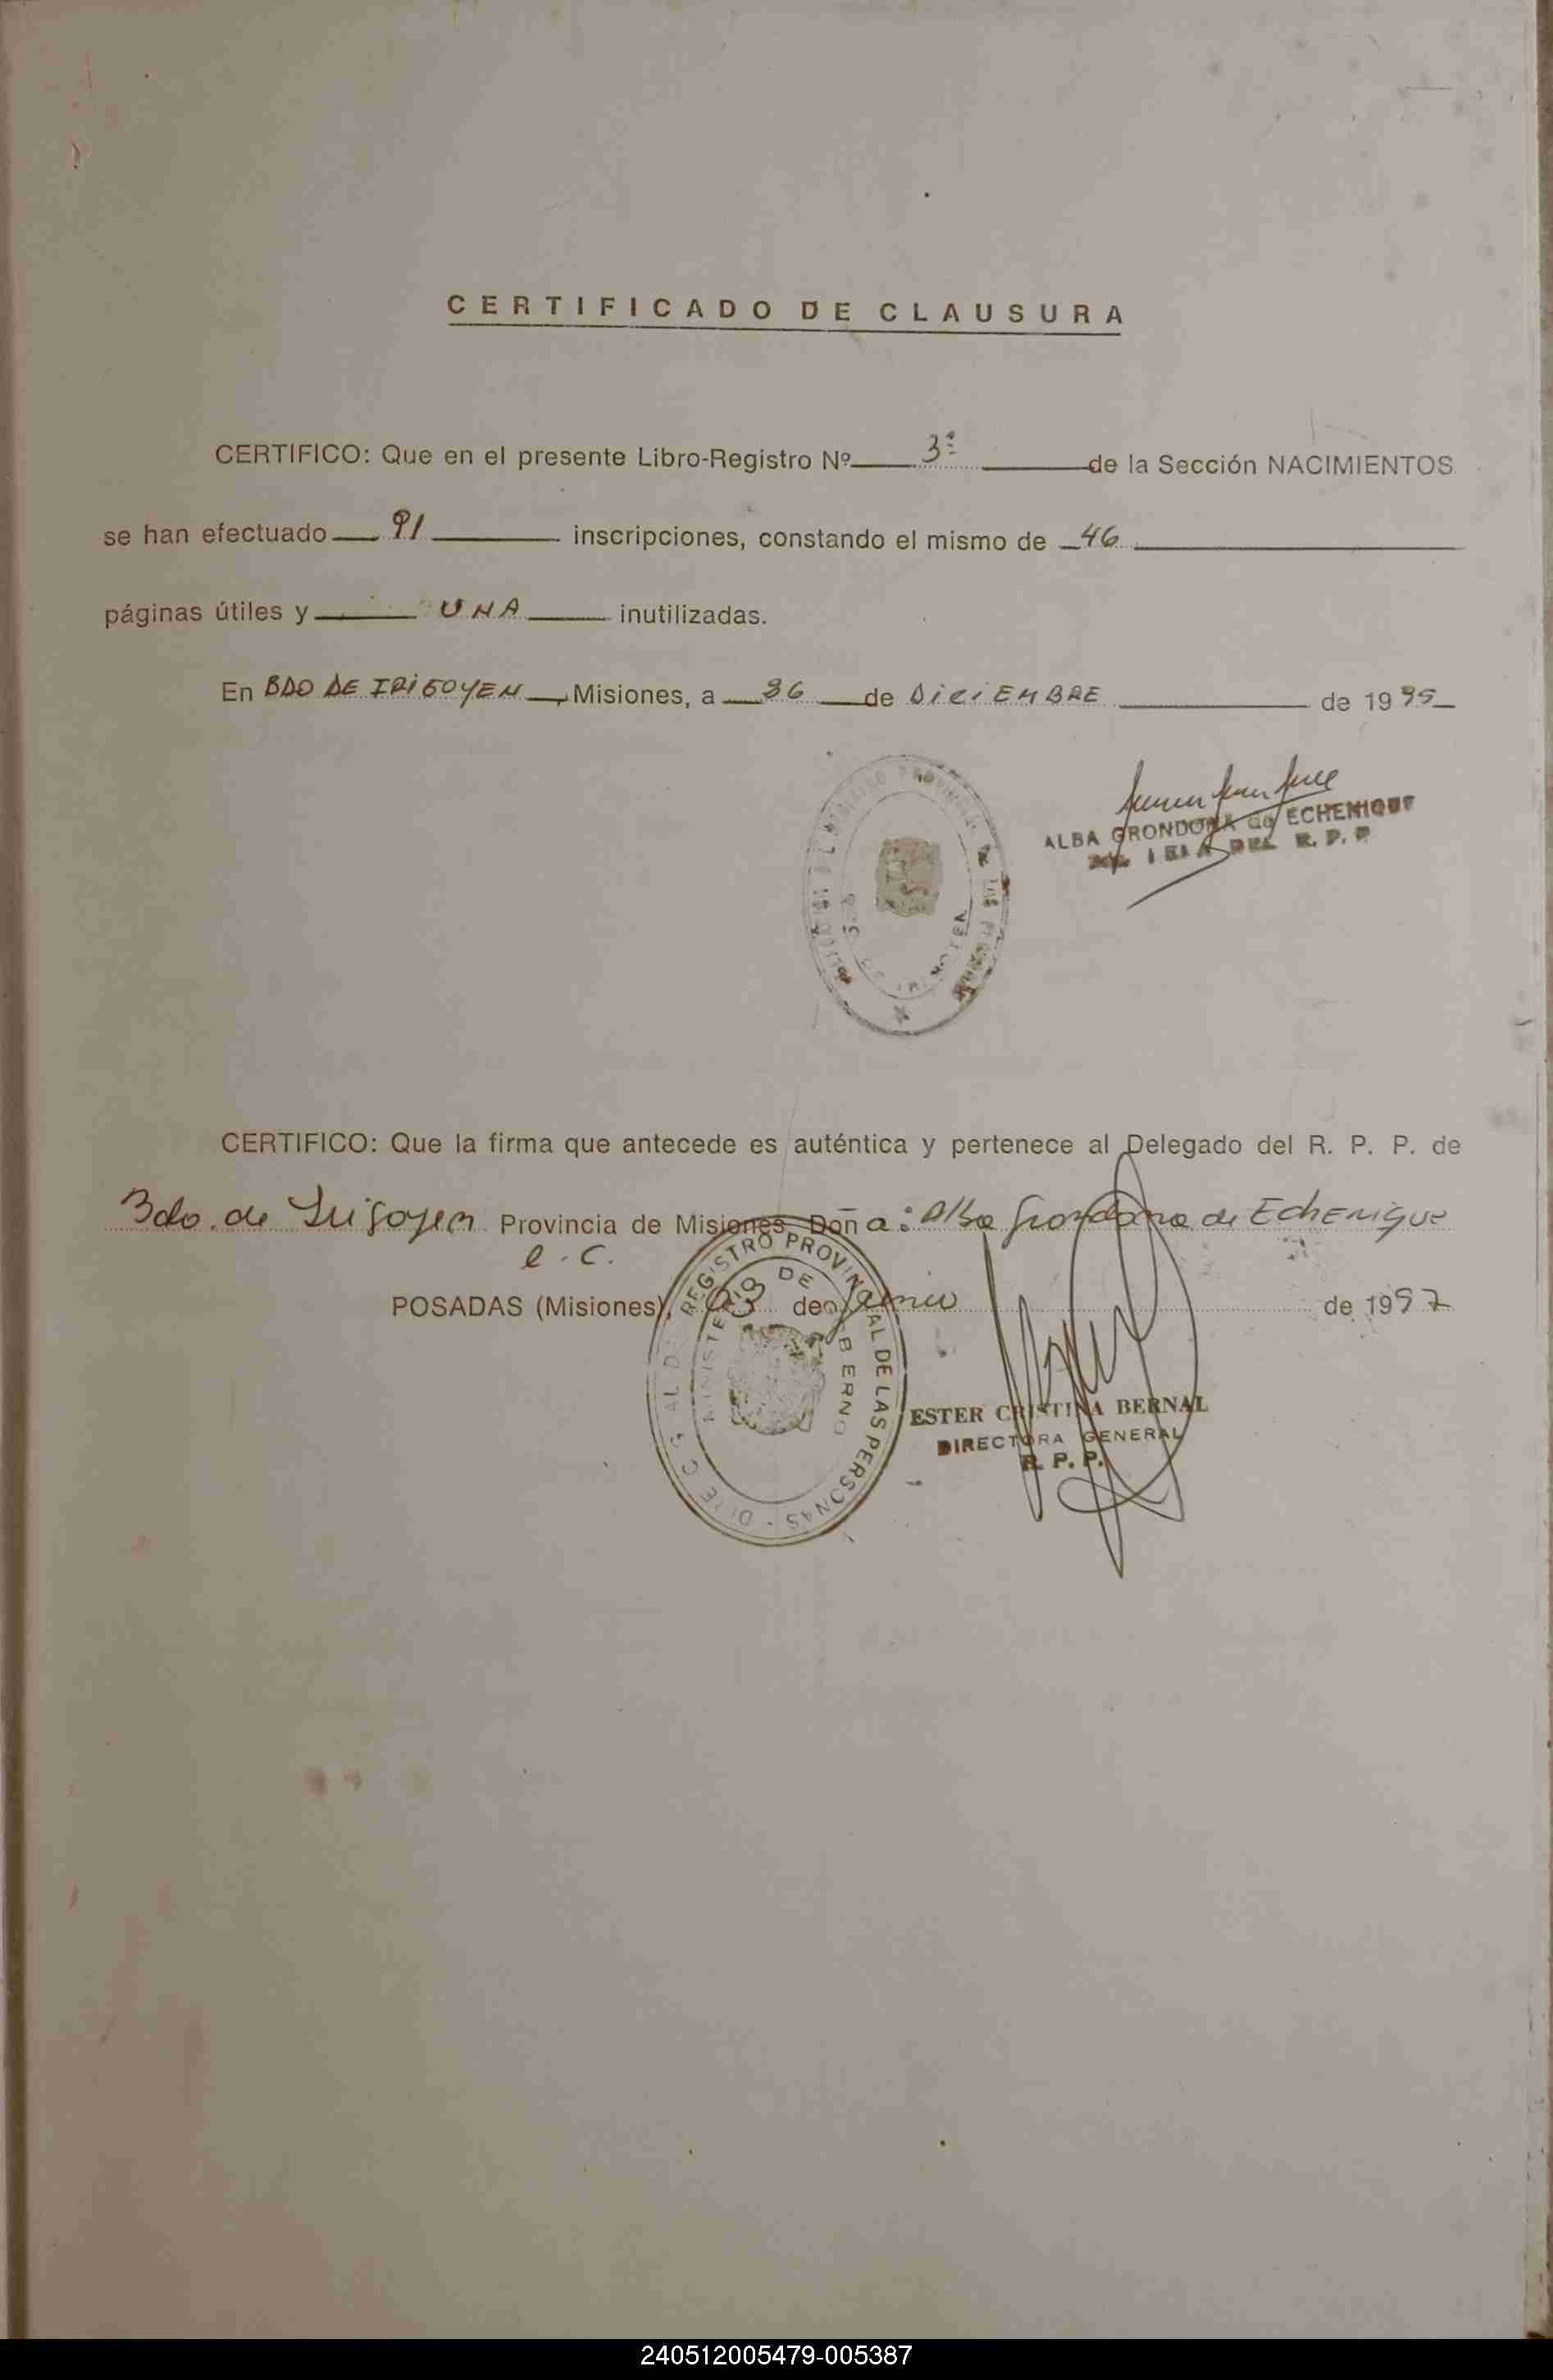 CERTIFICADO DE CLAUSURA
CERTIFICO: Que en el presente Libro-Registro Nº 3º de la Sección NACIMIENTOS
se han efectuado 91 inscripciones, constando el mismo de 46
páginas útiles y UNA inutilizadas.
En BDO DE IRIGOYEN, Misiones, a 26 de DICIEMBRE de 1995
ALBA GRONDONA de ECHENIQUE
DEL R. P. P.
CERTIFICO: Que la firma que antecede es auténtica y pertenece al Delegado del R. P. P. de
Bdo. de Irigoyen Provincia de Misiones Doña: Alba Grondona de Echenique
e . C.
POSADAS (Misiones), 03 de Junio de 1997
REGISTRO PROVINCIAL DE LAS PERSONAS
MINISTERIO DE GOBIERNO
ESTER CRISTINA BERNAL
DIRECTORA GENERAL
R. P. P.
240512005479-005387